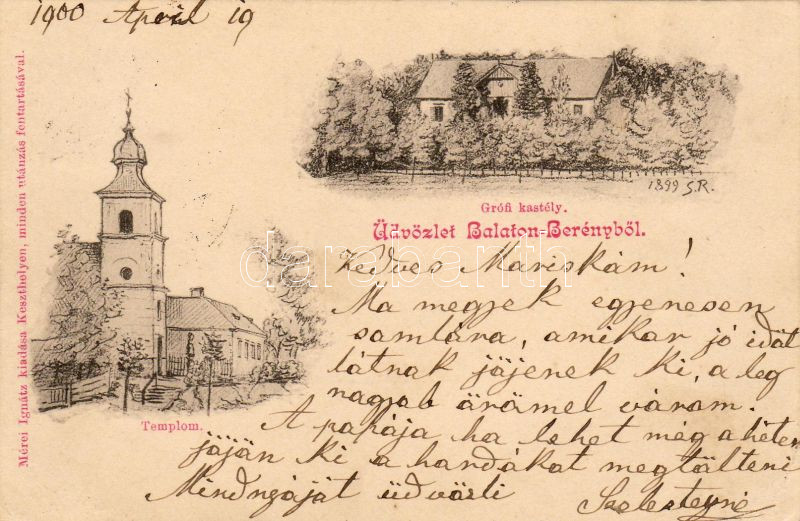 1900 April 19
Mérei Ignátz kiadása Keszthelyen, minden utánzás fentartásával.
1899 S.R.
Grófi kastély.
Üdvözlet Balaton-Berényből.
darabanth
Templom.
Kedves Mariskám!
Ma megyek egyenesen
samlára, amikar jó időt
látnak jőjenek ki, a leg
nagyab örömel várom.
A papája ha lehet még a héten
jőjön ki a hordókat megtölteni
Mindnyáját üdvözli